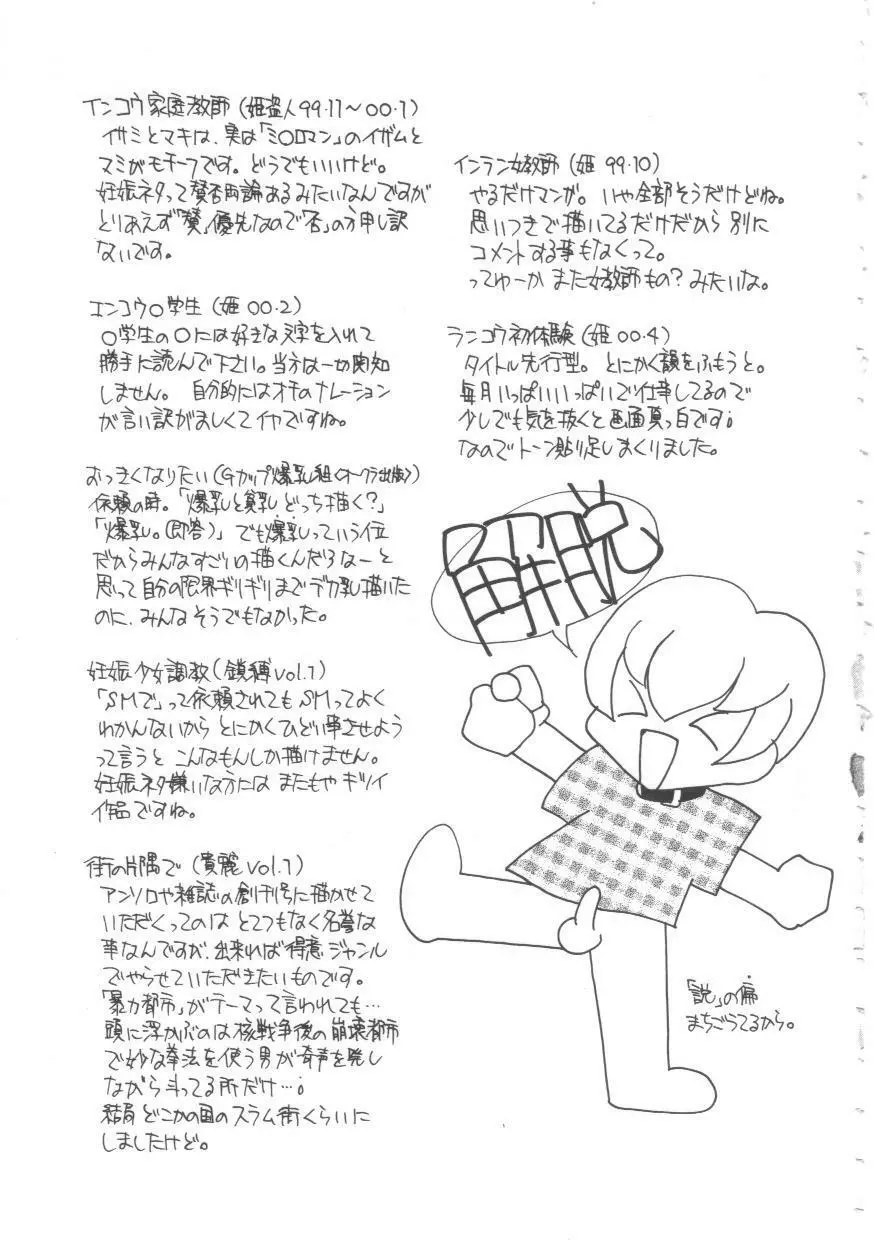 インコウ家庭教師（姫盗人99.11〜00.1）
イサミとマキは、実は「ミ○ロマン」のイザムと
マミがモチーフです。どうでもいいけど。
妊娠ネタって賛否両論あるみたいなんですが
とりあえず「賛」優先なので「否」の方申し訳
ないです。
エンコウ○学生（姫00.2）
○学生の○には好きな文字を入れて
勝手に読んで下さい。当方は一切関知
しません。自分的にはオチのナレーション
が言い訳がましくてイヤですね。
おっきくなりたい（Gカップ爆乳組＜オークラ出版＞）
依頼の時。「爆乳と貧乳どっち描く？」
「爆乳。（即答）」でも爆乳っていう位
だからみんなすごいの描くんだろなーと
思って自分の限界ギリギリまでデカ乳描いた
のに、みんなそうでもなかった。
妊娠少女調教（鎖縛vol.1）
「SMで」って依頼されてもSMってよく
わかんないからとにかくひどい事させよう
って言うとこんなもんしか描けません。
妊娠ネタ嫌いな方にはまたもやキツイ
作品ですね。
街の片隅で（貴麗vol.1）
アンソロや雑誌の創刊号に描かせて
いただくってのはとてつもなく名誉な
事なんですが、出来れば得意ジャンル
でやらせていただきたいものです。
「暴力都市」がテーマって言われても…
頭に浮かぶのは核戦争後の崩壊都市
で妙な拳法を使う男が奇声を発し
ながら斗ってる所だけ…。
結局どこかの国のスラム街くらいに
しましたけど。
インラン女教師（姫99.10）
やるだけマンガ。いや全部そうだけどね。
思いつきで描いてるだけだから別に
コメントする事もなくって。
ってゆーかまた女教師もの？みたいな。
ランコウ初体験（姫00.4）
タイトル先行型。とにかく韻をふもうと。
毎月いっぱいいっぱいで仕事してるので
少しでも気を抜くと画面真っ白です。
なのでトーン貼り足しまくりました。
「説」の偏
まちごうてるから。